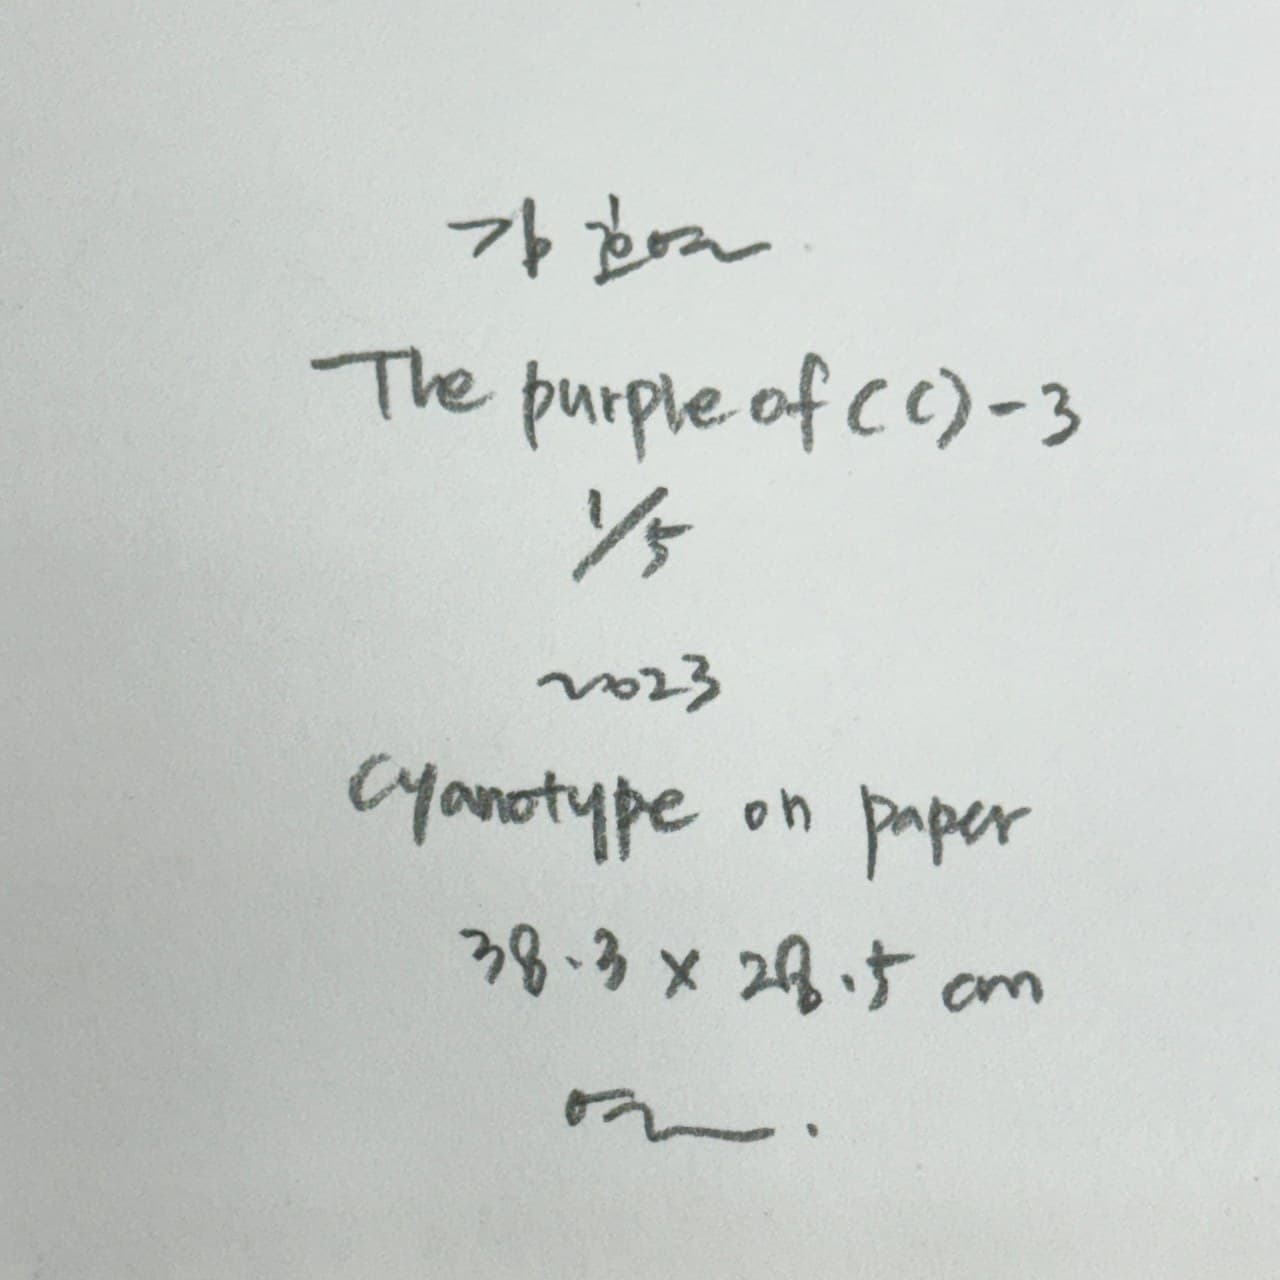 김효연
The purple of (C)-3
1/5
2023
Cyanotype on paper
38.3 x 28.5 cm